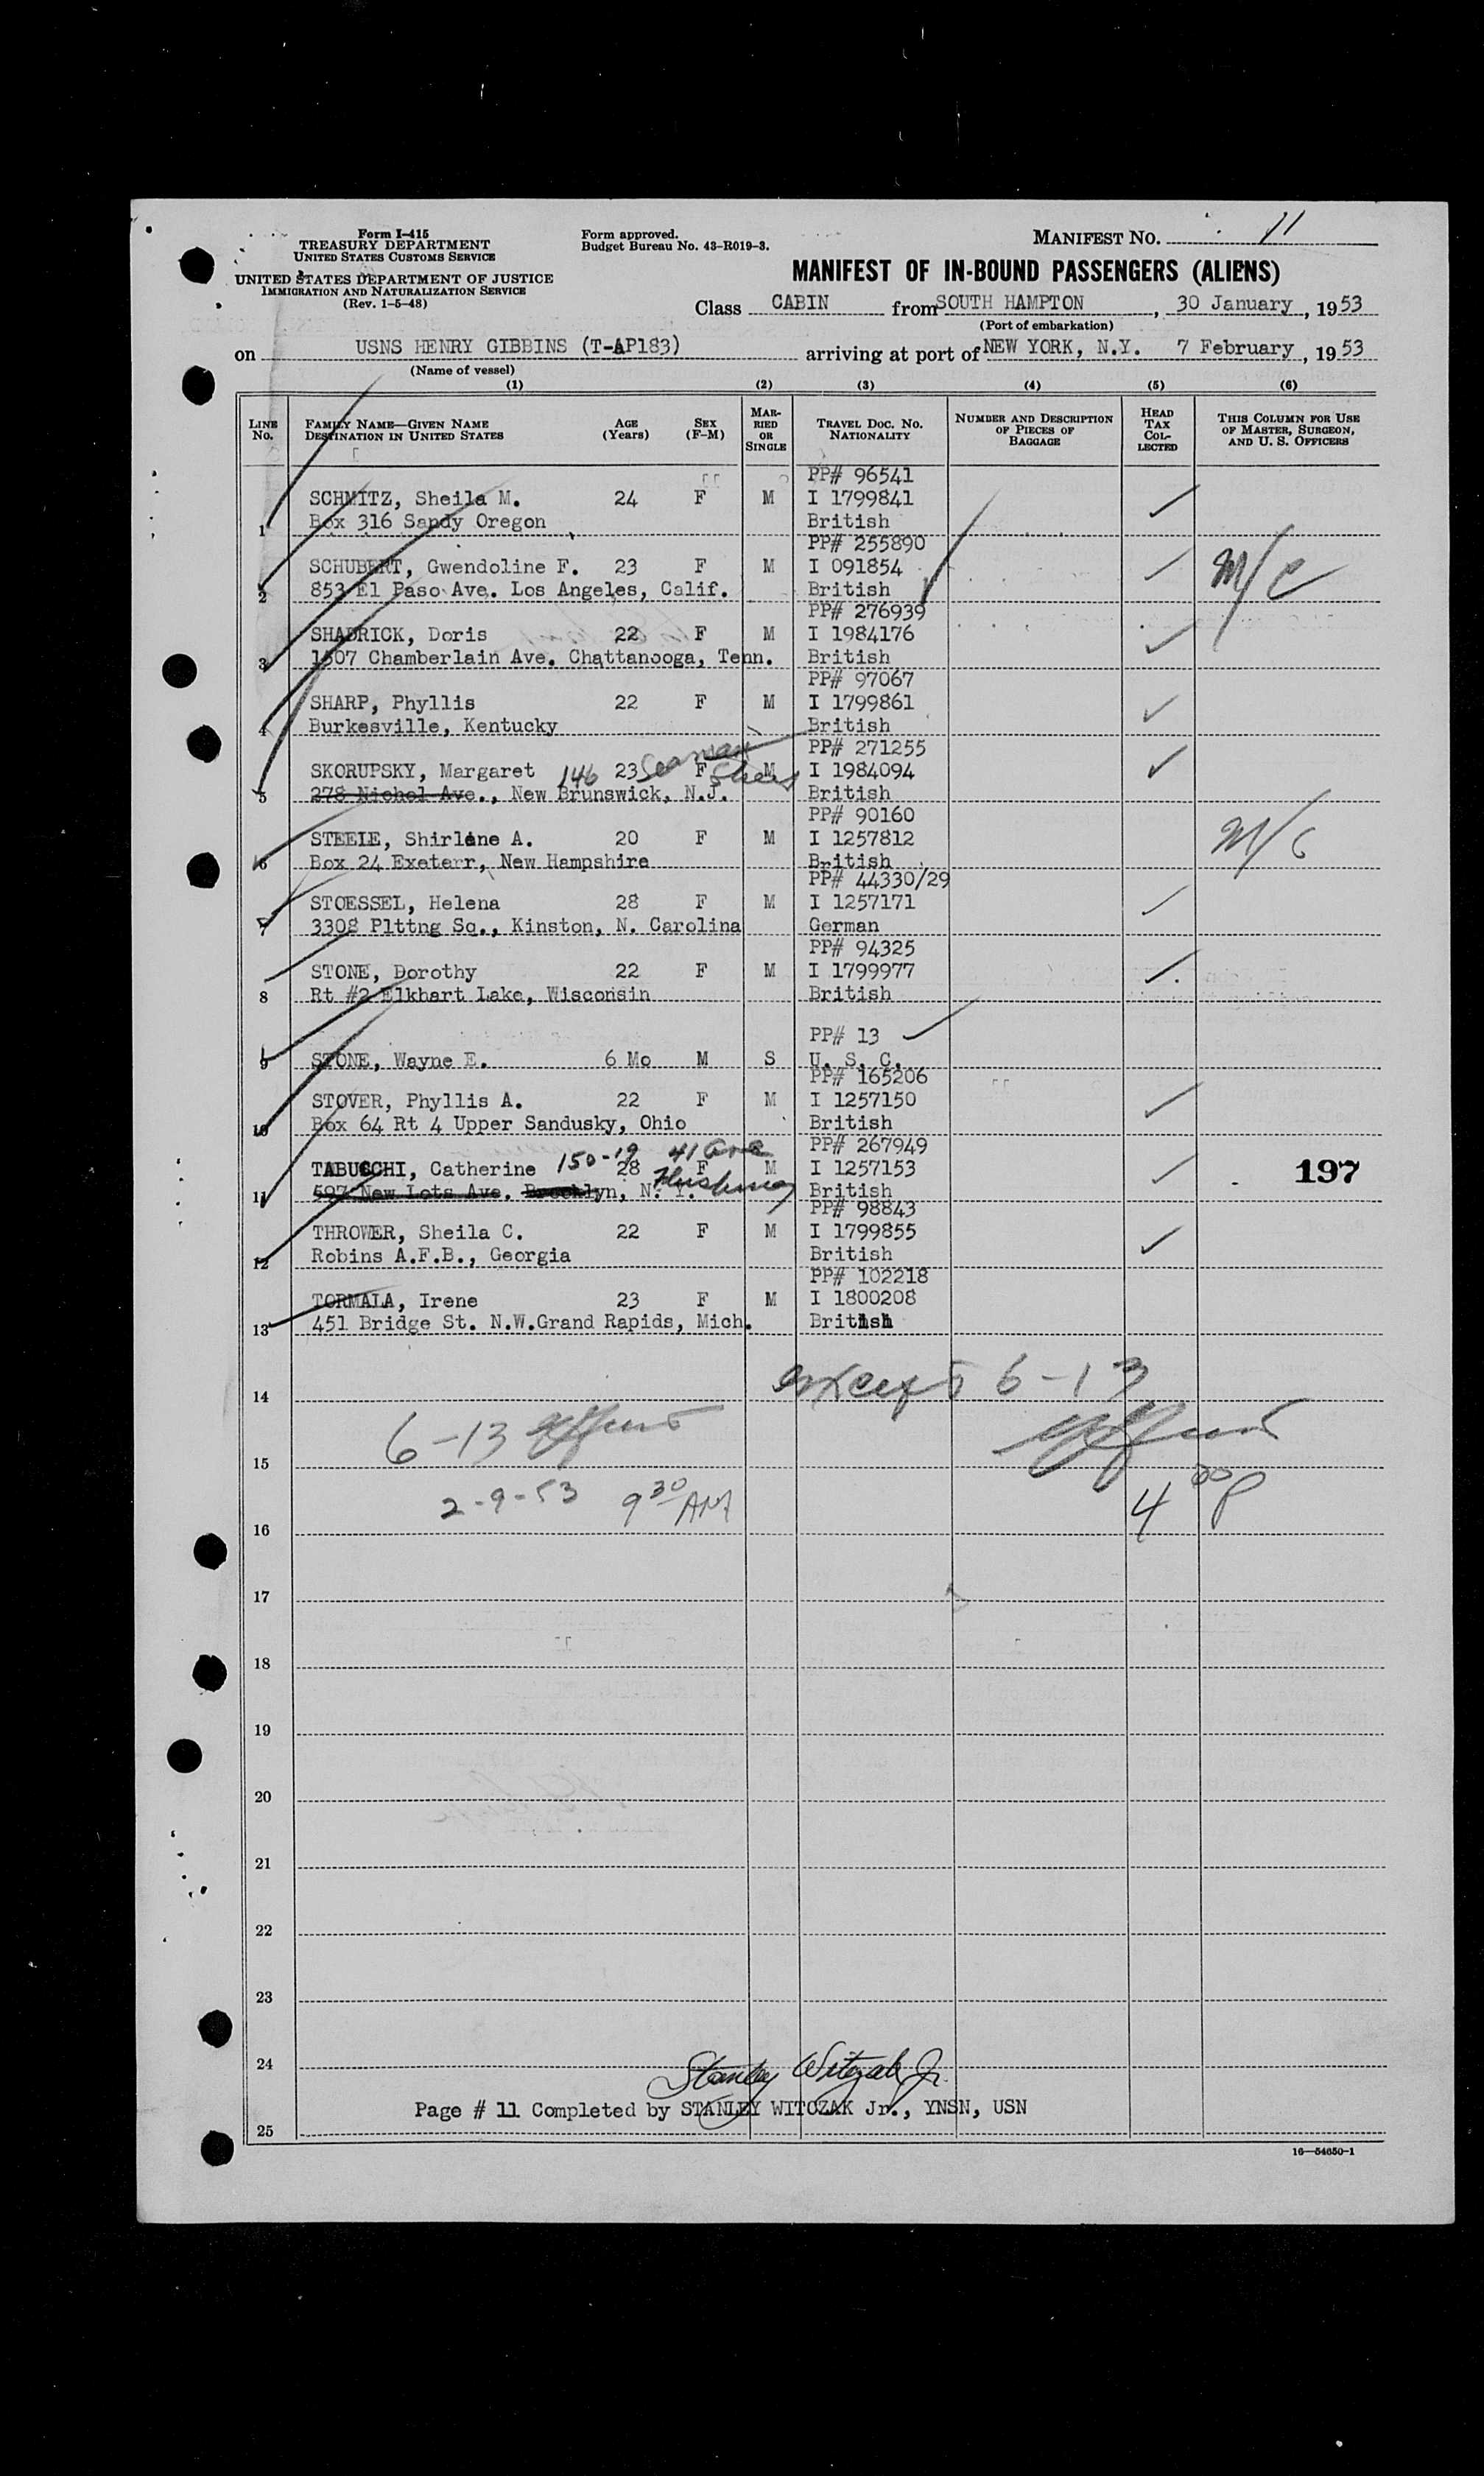 Form I-415
TREASURY DEPARTMENT
UNITED STATES CUSTOMS SERVICE
UNITED STATES DEPARTMENT OF JUSTICE
IMMIGRATION AND NATURALIZATION SERVICE
(Rev. 1-5-48)
Form approved.
Budget Bureau No. 43-R019-3.
MANIFEST NO. 11
MANIFEST OF IN-BOUND PASSENGERS (ALIENS)
Class CABIN from SOUTH HAMPTON, 30 January, 1953
(Port of embarkation)
on USNS HENRY GIBBINS (T-AP183) arriving at port of NEW YORK, N.Y. 7 February, 1953
(Name of vessel)
(1) (2) (3) (4) (5) (6)
LINE No. FAMILY NAME—GIVEN NAME DESTINATION IN UNITED STATES AGE (Years) SEX (F-M) MARRIED OR SINGLE TRAVEL DOC. NO. NATIONALITY NUMBER AND DESCRIPTION OF PIECES OF BAGGAGE HEAD TAX COLLECTED THIS COLUMN FOR USE OF MASTER, SURGEON, AND U. S. OFFICERS
PP# 96541
SCHMITZ, Sheila M. 24 F M I 1799841
1 Box 316 Sandy Oregon British
PP# 255890
SCHUBERT, Gwendoline F. 23 F M I 091854 M/C
2 853 El Paso Ave. Los Angeles, Calif. British
PP# 276939
SHADRICK, Doris 22 F M I 1984176
3 1507 Chamberlain Ave. Chattanooga, Tenn. British
PP# 97067
SHARP, Phyllis 22 F M I 1799861
4 Burkesville, Kentucky British
PP# 271255
SKORUPSKY, Margaret 146 23 Seaman Street F M I 1984094
5 278 Nichol Ave., New Brunswick, N.J. British
PP# 90160
STEELE, Shirlene A. 20 F M I 1257812 M/C
6 Box 24 Exeterr, New Hampshire British
PP# 44330/29
STOESSEL, Helena 28 F M I 1257171
7 3308 Plttng Sq., Kinston, N. Carolina German
PP# 94325
STONE, Dorothy 22 F M I 1799977
8 Rt #2 Elkhart Lake, Wisconsin British
PP# 13
9 STONE, Wayne E. 6 Mo M S U. S. C.
PP# 165206
STOVER, Phyllis A. 22 F M I 1257150
10 Box 64 Rt 4 Upper Sandusky, Ohio British
PP# 267949
TABUCCHI, Catherine 150-19 41 Ave 28 F M I 1257153 197
11 597 New Lots Ave. Brooklyn, N. Y. Flushing British
PP# 98843
THROWER, Sheila C. 22 F M I 1799855
12 Robins A.F.B., Georgia British
PP# 102218
TORMALA, Irene 23 F M I 1800208
13 451 Bridge St. N.W.Grand Rapids, Mich. British
except 6-13
14
6-13
15
2-9-53 9 30 AM 4 00 P
16
17
18
19
20
21
22
23
24
Stanley Witczak Jr.
Page # 11 Completed by STANLEY WITCZAK Jr., YNSN, USN
25
16—54650-1